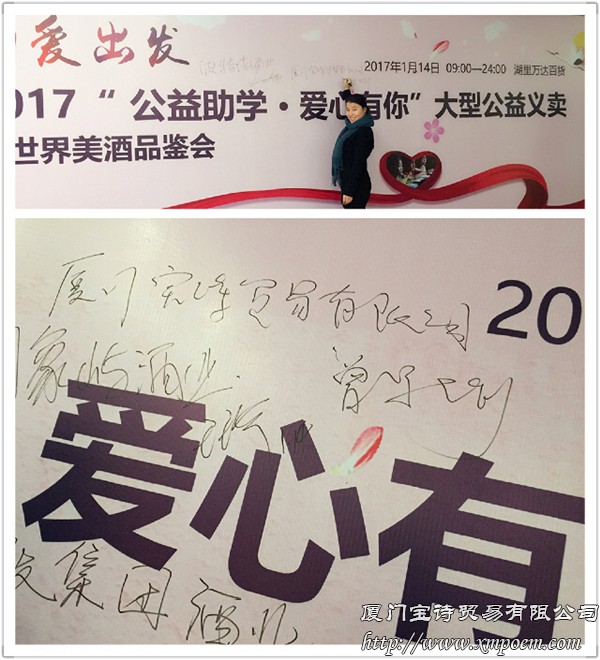 爱出发
2017年1月14日 09:00—24:00 湖里万达百货
017 “ 公益助学·爱心有你”大型公益义卖
世界美酒品鉴会
厦门宝诗贸易有限公司
20
象屿酒业
爱心有
集团酒业
厦门宝诗贸易有限公司
http://www.xmpoem.com